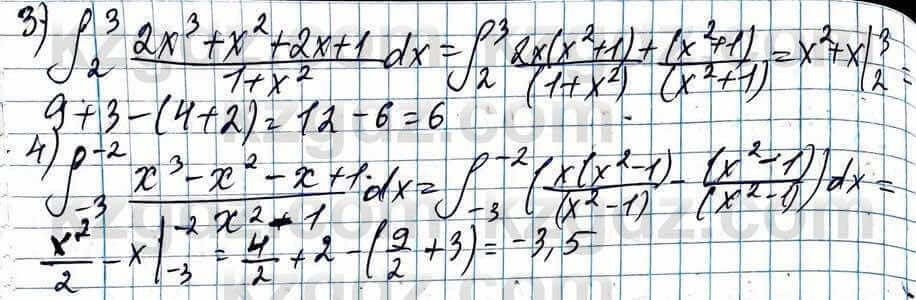 3) ∫₂³ (2x³+x²+2x+1)/(1+x²) dx = ∫₂³ 2x(x²+1)/(1+x²) + (x²+1)/(x²+1) = x²+x|₂³ =
9+3-(4+2)=12-6=6
4) ∫₋₃⁻² (x³-x²-x+1)/(x²-1) dx = ∫₋₃⁻² (x(x²-1)/(x²-1) - (x²-1)/(x²-1)) dx =
x²/2 - x|₋₃⁻² = 4/2 + 2 - (9/2 + 3) = -3,5